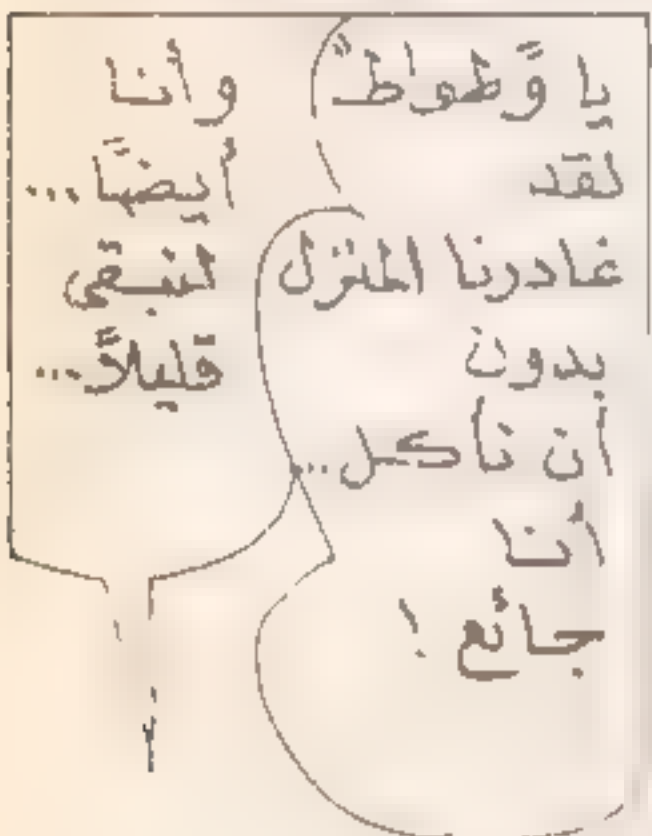 يا وَّطواطً
لقد
غادرنا المنزل
بدون
أن نأكل...
أنا
جائع !
وأنا
أيضًا...
لنبقى
قليلاً...